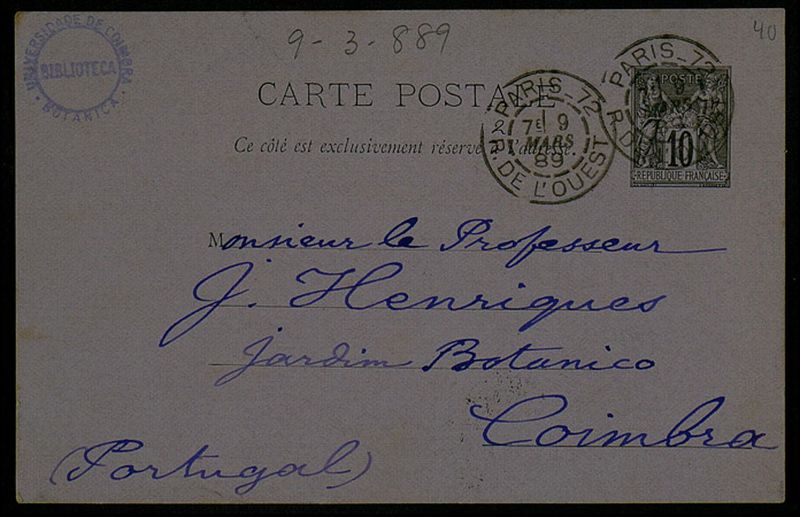 UNIVERSIDADE DE COIMBRA
BIBLIOTECA
BOTANICA
9-3-889
40
CARTE POSTALE
Ce côté est exclusivement réservé à l'adresse.
PARIS_72
7E 9
MARS
89
R. DE L'OUEST
PARIS_72
POSTE
10
REPUBLIQUE FRANÇAISE
Monsieur le Professeur
J. Henriques
Jardim Botanico
Coimbra
(Portugal)